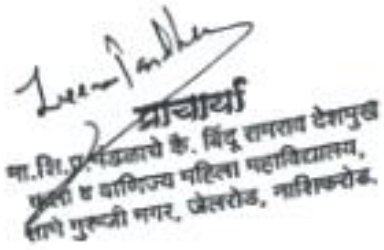 प्राचार्या
मा.शि.प्र.मंडळाचे कै. बिंदू रामराव देशमुख
कला व वाणिज्य महिला महाविद्यालय,
साने गुरूजी नगर, जेलरोड, नाशिकरोड.